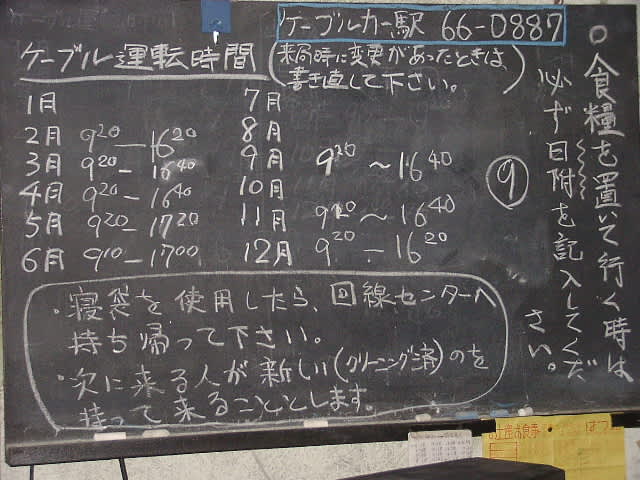 ケーブルカー駅 66-0887
ケーブル運転時間
(来局時に変更があったときは
書き直して下さい。)
1月
2月 9²⁰ — 16²⁰
3月 9²⁰ — 16⁴⁰
4月 9²⁰ — 16⁴⁰
5月 9²⁰ — 17²⁰
6月 9¹⁰ — 17⁰⁰
7月
8月
9月 9²⁰ ~ 16⁴⁰
10月
11月 9²⁰ ~ 16⁴⁰
12月 9²⁰ — 16²⁰
⑨
○食糧を置いて行く時は
必ず日附を記入してくだ
さい。
・寝袋を使用したら、回線センターへ
持ち帰って下さい。
・次に来る人が新しい(クリーニング済)のを
持って来ることとします。